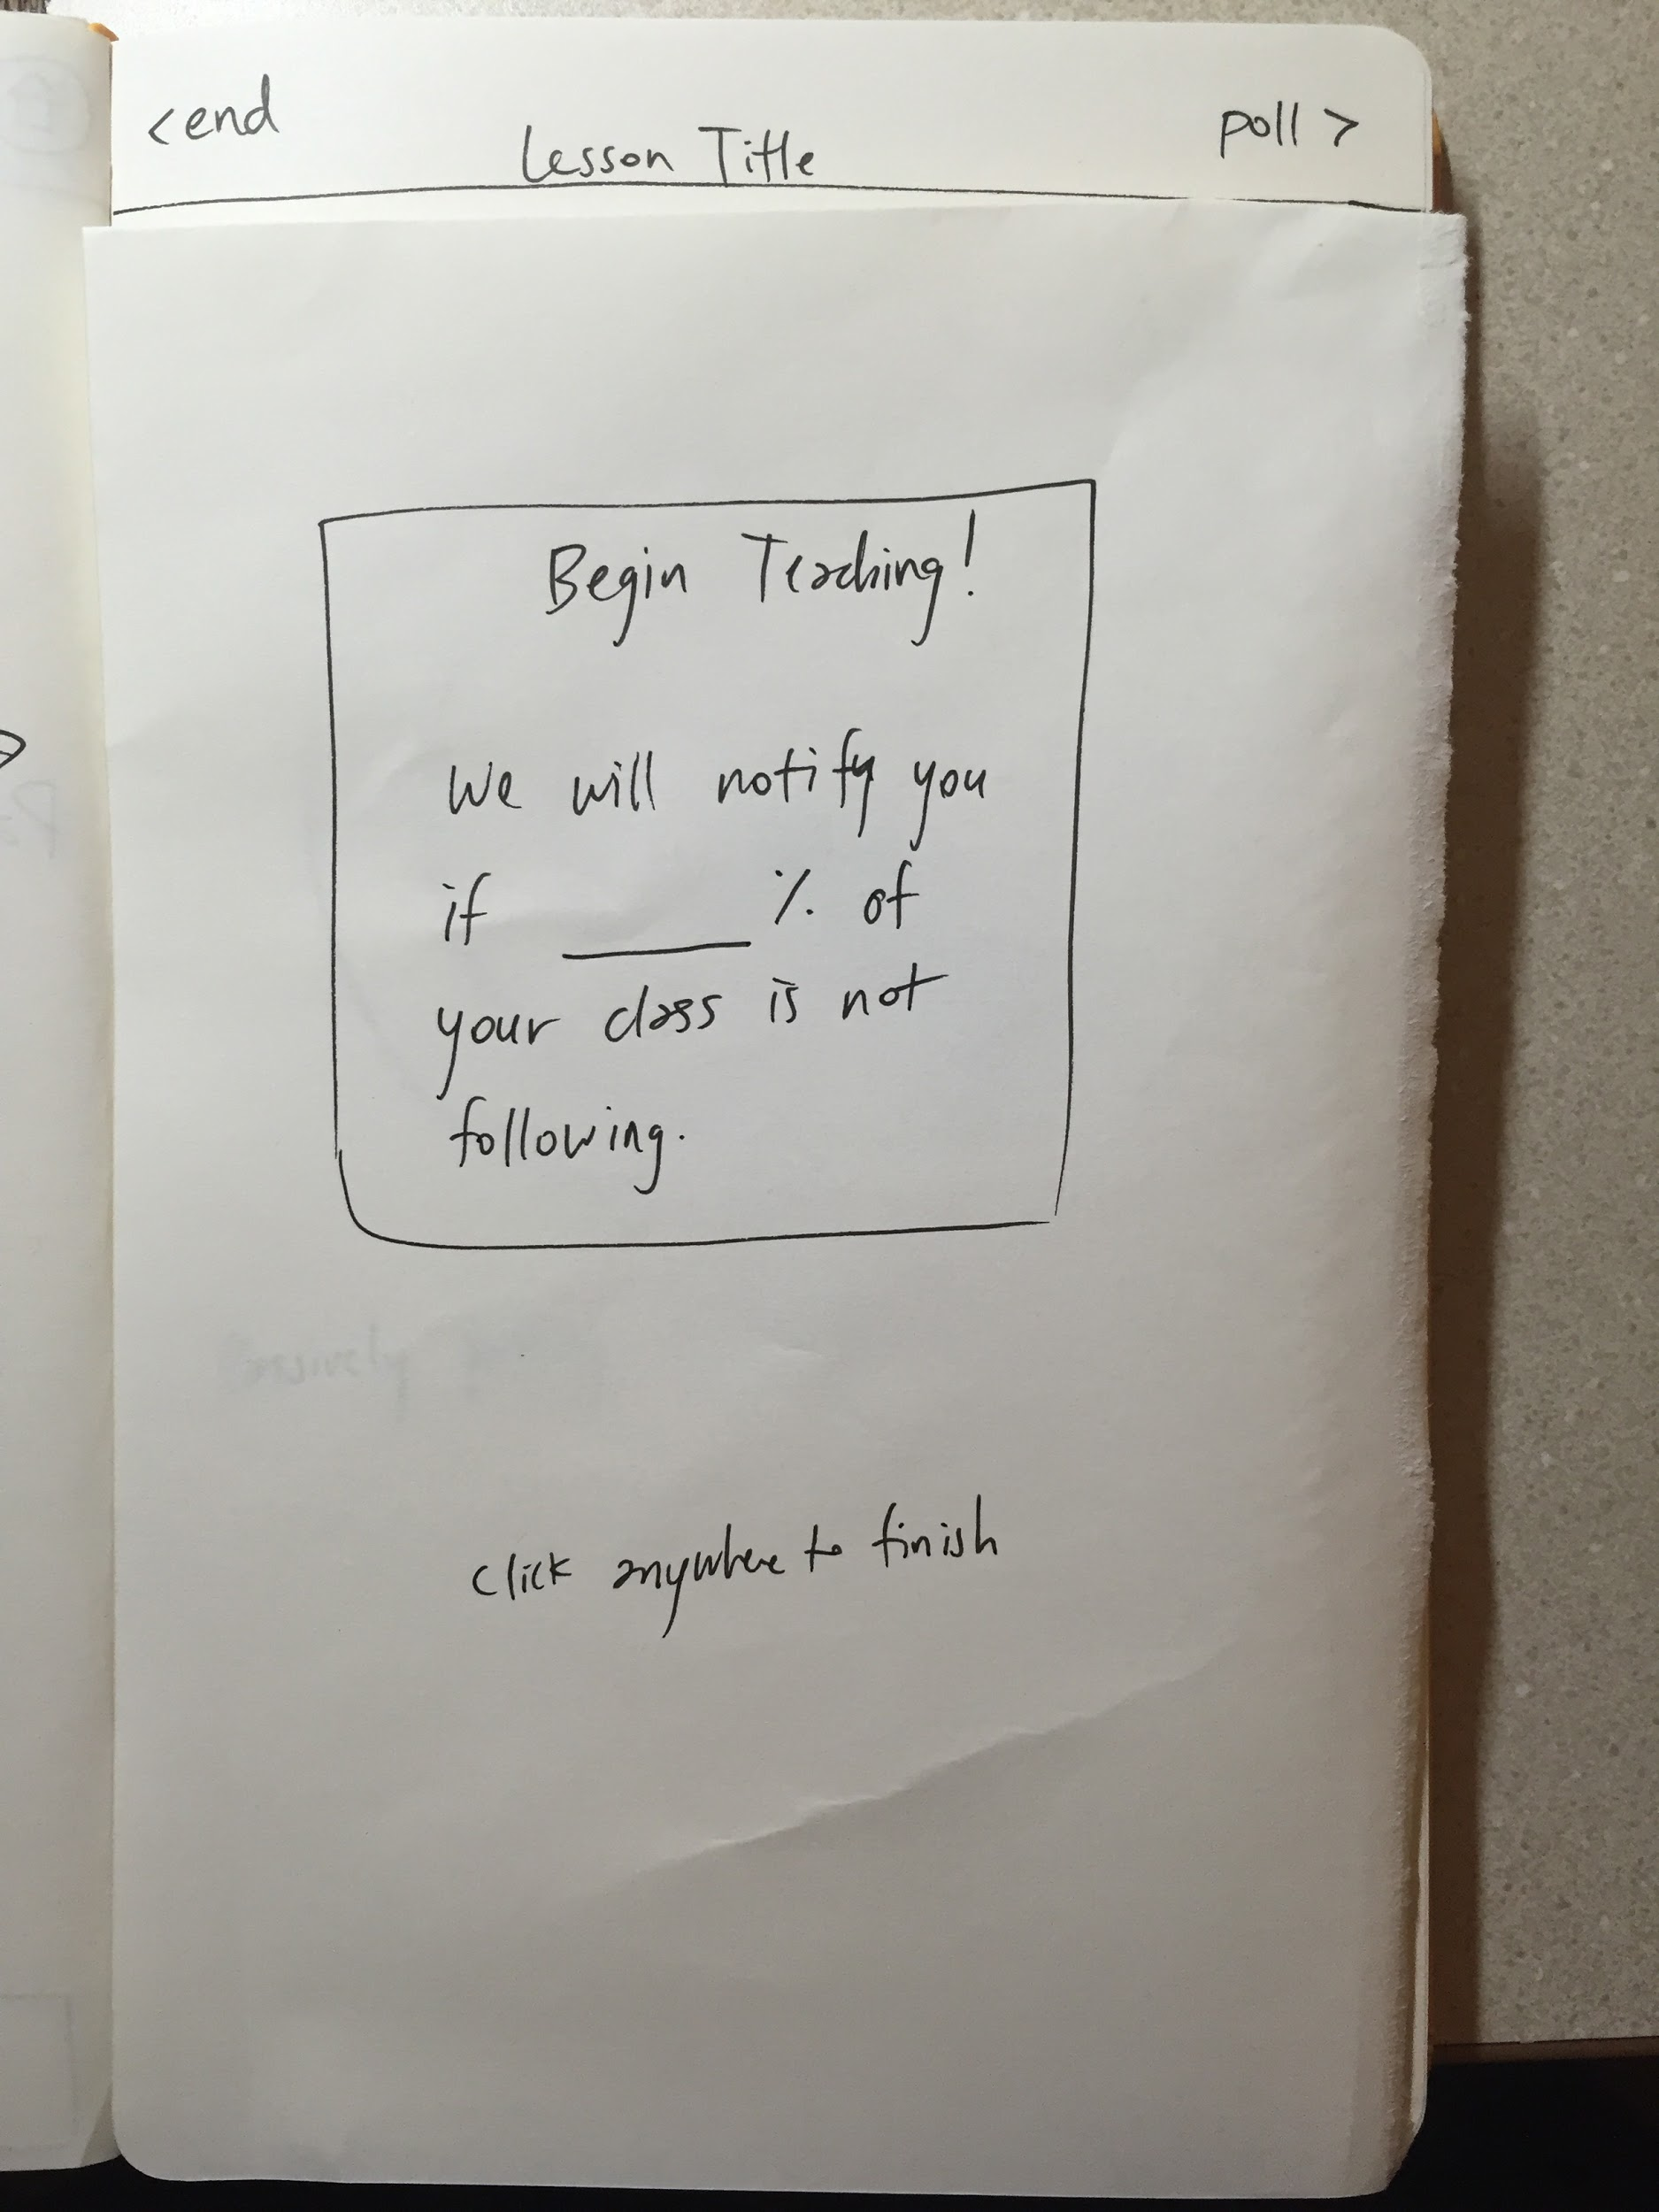 <end
Lesson Title
poll >
Begin Teaching!
We will notify you
if ____ % of
your class is not
following.
click anywhere to finish